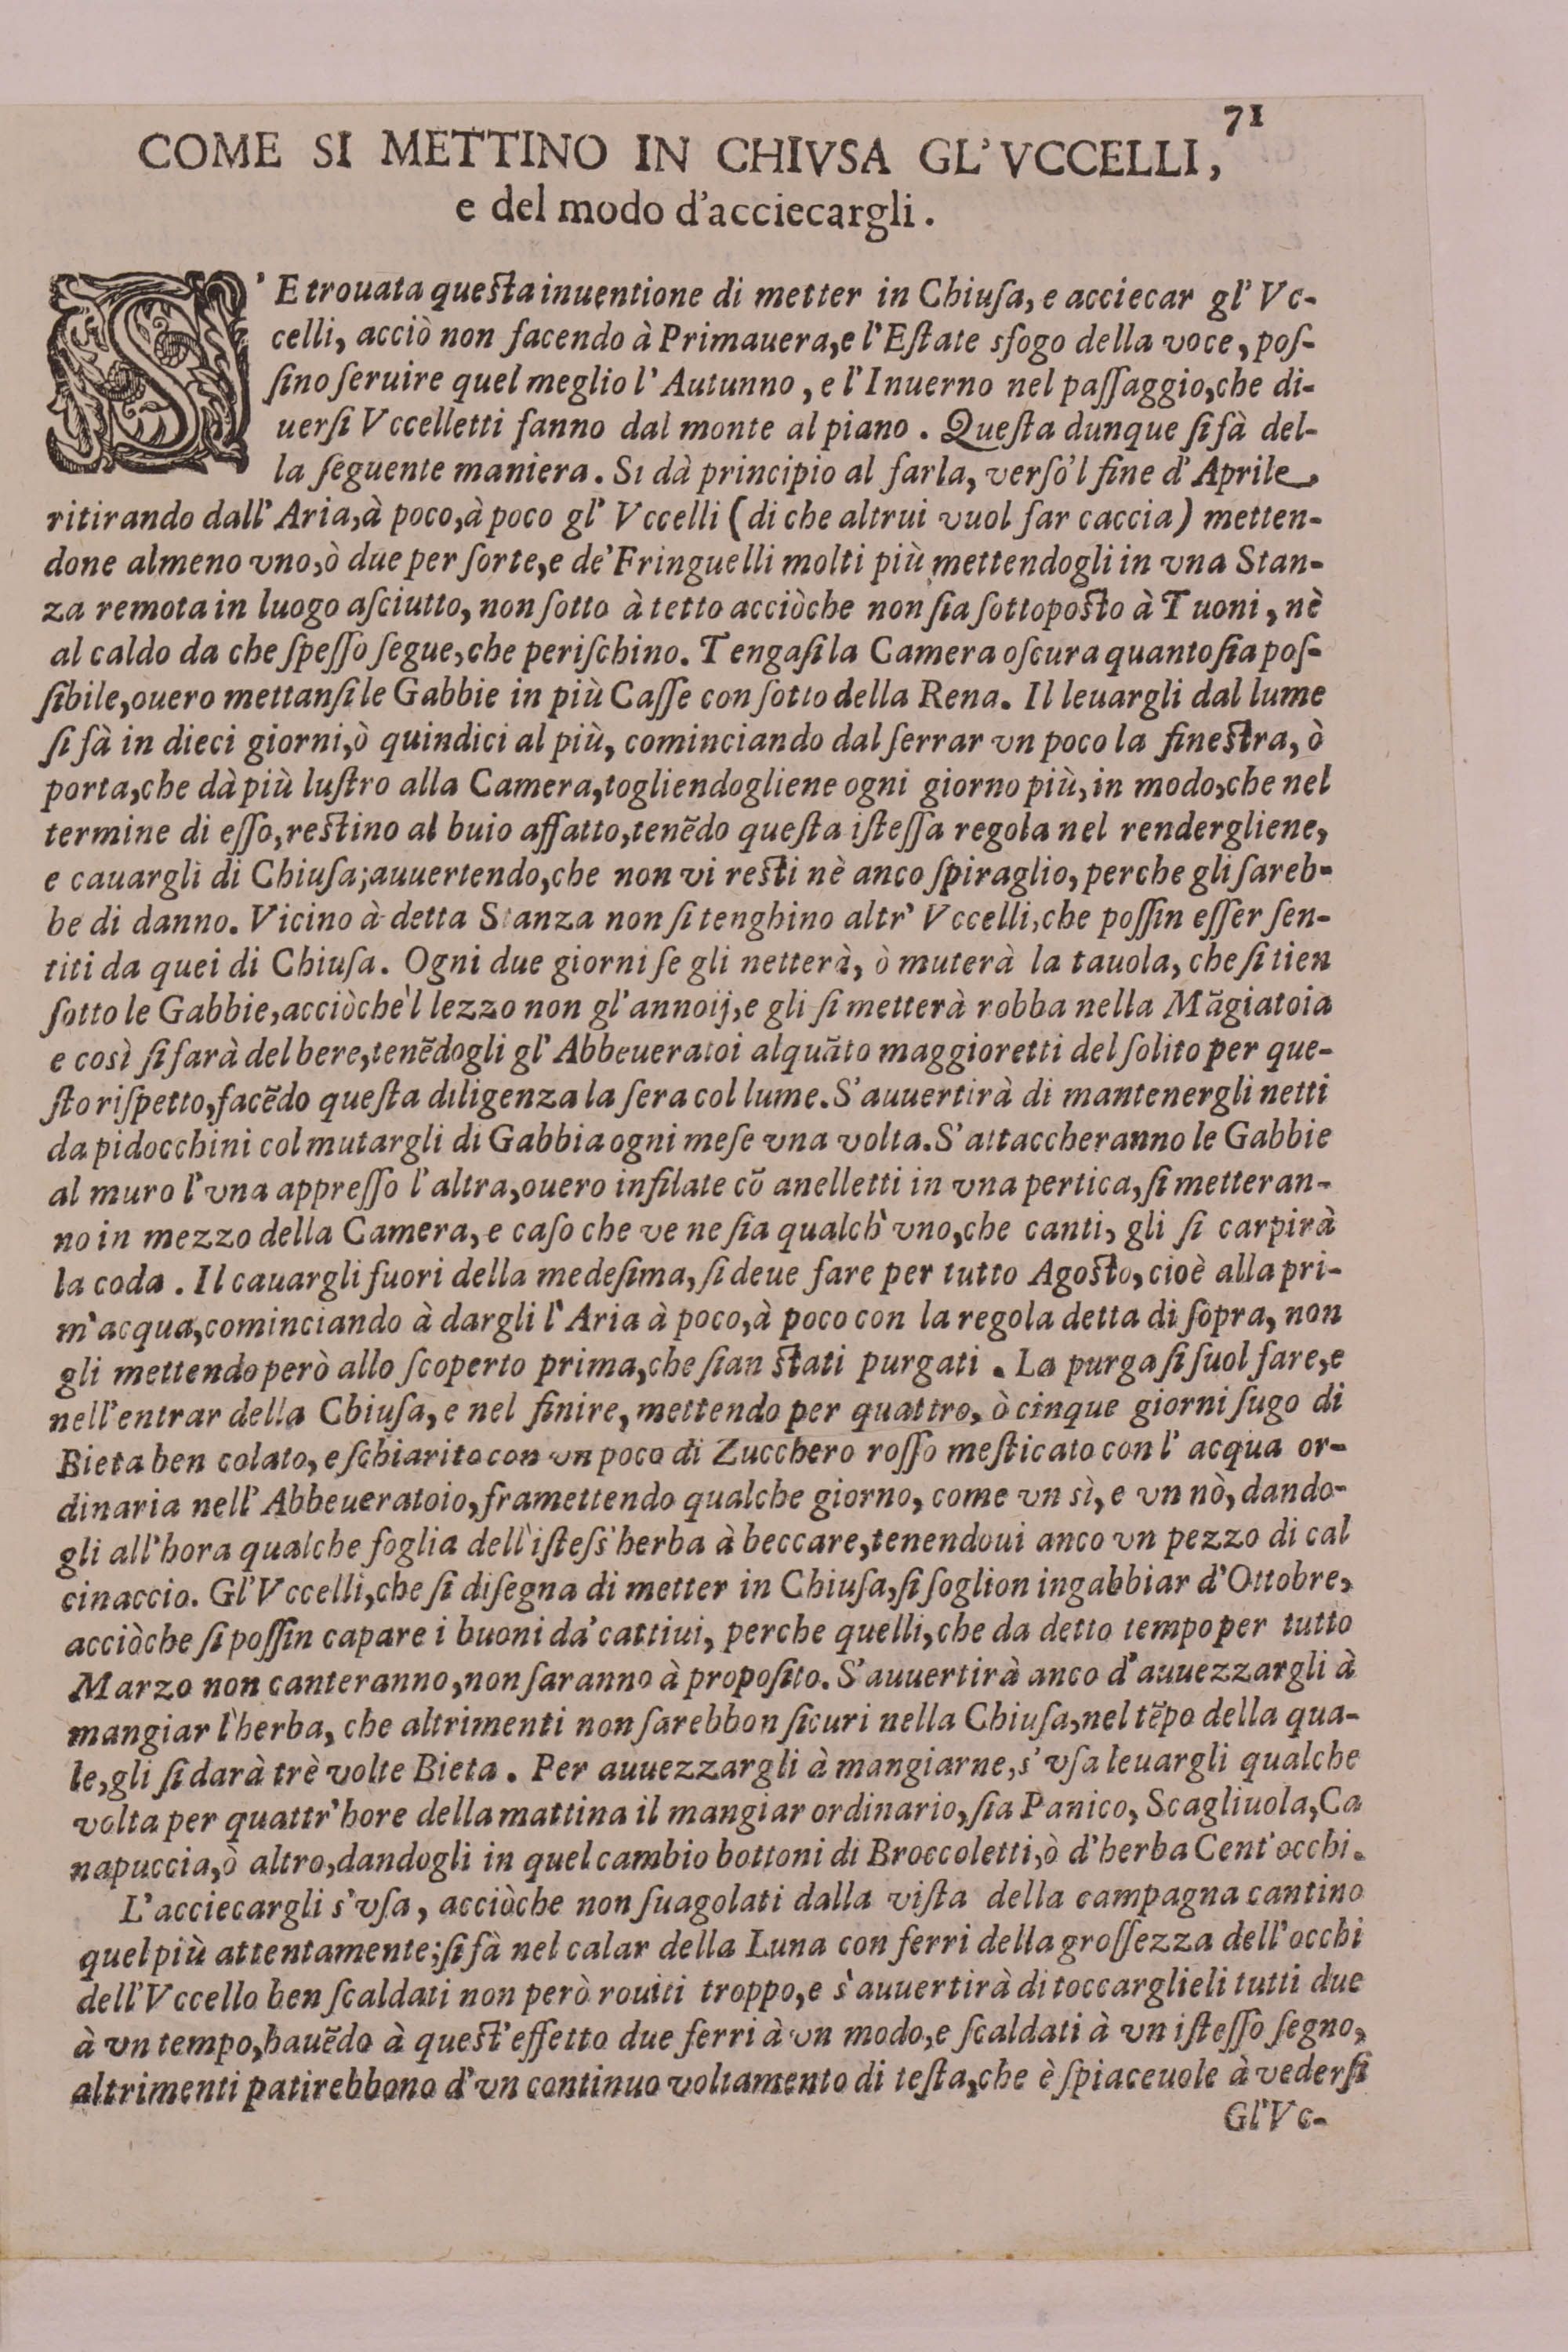 71
COME SI METTINO IN CHIVSA GL' VCCELLI,
e del modo d'acciecargli.
S' E trouata questa inuentione di metter in Chiuſa, e acciecar gl' Vc-
celli, acciò non facendo à Primauera, e l'Eſtate sfogo della voce, poſ-
ſino ſeruire quel meglio l' Autunno, e l'Inuerno nel paſſaggio, che di-
uerſi Vccelletti fanno dal monte al piano. Queſta dunque ſi fà del-
la ſeguente maniera. Si dà principio al farla, verſo'l fine d' Aprile,
ritirando dall' Aria, à poco, à poco gl' Vccelli (di che altrui vuol far caccia) metten-
done almeno vno, ò due per ſorte, e de' Fringuelli molti più mettendogli in vna Stan-
za remota in luogo aſciutto, non ſotto à tetto acciòche non ſia ſottoposto à Tuoni, nè
al caldo da che ſpeſſo ſegue, che periſchino. Tengaſi la Camera oſcura quanto ſia poſ-
ſibile, ouero mettanſi le Gabbie in più Caſſe con ſotto della Rena. Il leuargli dal lume
ſi fà in dieci giorni, ò quindici al più, cominciando dal ſerrar vn poco la finestra, ò
porta, che dà più luſtro alla Camera, togliendogliene ogni giorno più, in modo, che nel
termine di eſſo, restino al buio affatto, tenẽdo queſta iſteſſa regola nel rendergliene,
e cauargli di Chiuſa; auuertendo, che non vi resti nè anco ſpiraglio, perche gli ſareb-
be di danno. Vicino à detta Stanza non ſi tenghino altr' Vccelli, che poſſin eſſer ſen-
titi da quei di Chiuſa. Ogni due giorni ſe gli netterà, ò muterà la tauola, che ſi tien
ſotto le Gabbie, acciòche'l lezzo non gl'annoij, e gli ſi metterà robba nella Mãgiatoia
e così ſi farà del bere, tenẽdogli gl' Abbeueratoi alquãto maggioretti del ſolito per que-
ſto riſpetto, facẽdo queſta diligenza la ſera col lume. S'auuertirà di mantenergli netti
da pidocchini col mutargli di Gabbia ogni meſe vna volta. S'attaccheranno le Gabbie
al muro l'vna appreſſo l'altra, ouero infilate cõ anelletti in vna pertica, ſi metteran-
no in mezzo della Camera, e caſo che ve ne ſia qualch' vno, che canti, gli ſi carpirà
la coda. Il cauargli fuori della medeſima, ſi deue fare per tutto Agosto, cioè alla pri-
m'acqua, cominciando à dargli l'Aria à poco, à poco con la regola detta di ſopra, non
gli mettendo però allo ſcoperto prima, che ſian stati purgati. La purga ſi ſuol fare, e
nell'entrar della Chiuſa, e nel finire, mettendo per quattro, ò cinque giorni ſugo di
Bieta ben colato, e ſchiarito con vn poco di Zucchero roſſo meſticato con l' acqua or-
dinaria nell' Abbeueratoio, framettendo qualche giorno, come vn sì, e vn nò, dando-
gli all'hora qualche foglia dell'iſteſs'herba à beccare, tenendoui anco vn pezzo di cal
cinaccio. Gl'Vccelli, che ſi diſegna di metter in Chiuſa, ſi ſoglion ingabbiar d'Ottobre,
acciòche ſi poſſin capare i buoni da' cattiui, perche quelli, che da detto tempo per tutto
Marzo non canteranno, non ſaranno à propoſito. S'auuertirà anco d'auuezzargli à
mangiar l'herba, che altrimenti non ſarebbon ſicuri nella Chiuſa, nel tẽpo della qua-
le, gli ſi darà trè volte Bieta. Per auuezzargli à mangiarne, s'vſa leuargli qualche
volta per quattr' hore della mattina il mangiar ordinario, ſia Panico, Scagliuola, Ca
napuccia, ò altro, dandogli in quel cambio bottoni di Broccoletti, ò d'herba Cent'occhi.
L'acciecargli s'vſa, acciòche non ſuagolati dalla viſta della campagna cantino
quel più attentamente; ſi fà nel calar della Luna con ferri della groſſezza dell'occhi
dell'Vccello ben ſcaldati non però rouiti troppo, e s'auuertirà di toccarglieli tutti due
à vn tempo, hauẽdo à quest'effetto due ferri à vn modo, e ſcaldati à vn iſteſſo ſegno,
altrimenti patirebbono d'vn continuo voltamento di teſta, che è ſpiaceuole à vederſi
Gl'Vc-